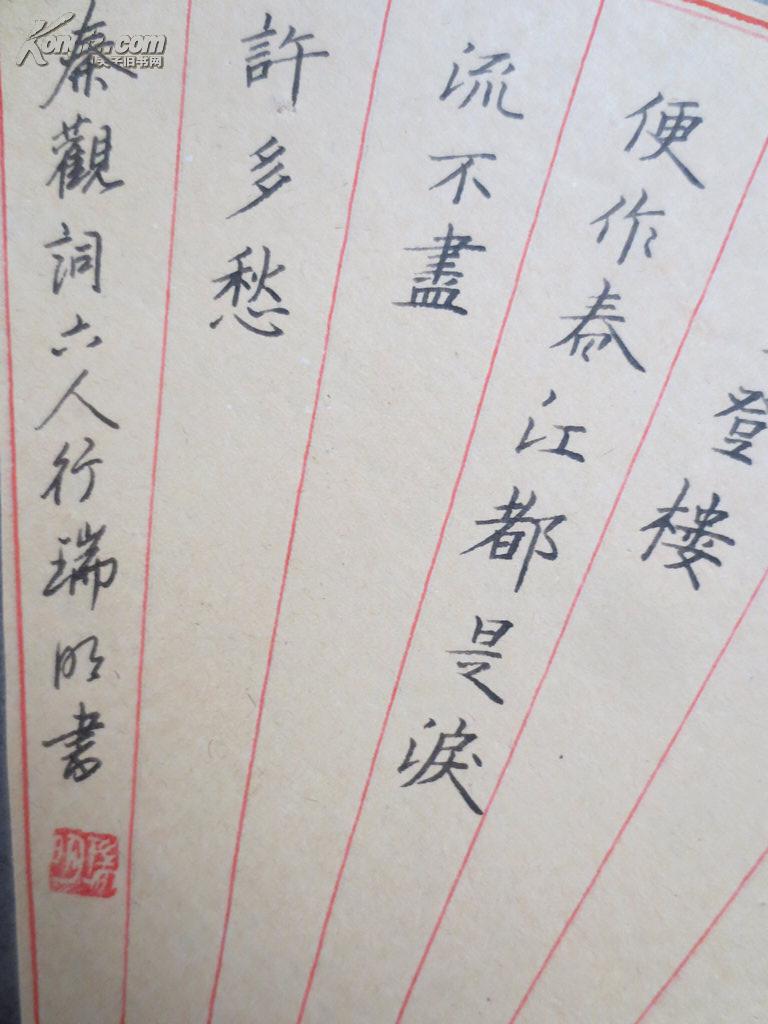 登楼
便作春江都是淚
流不盡
許多愁
秦觀詞六人行瑞明書
Kongfz.com
孔夫子旧书网